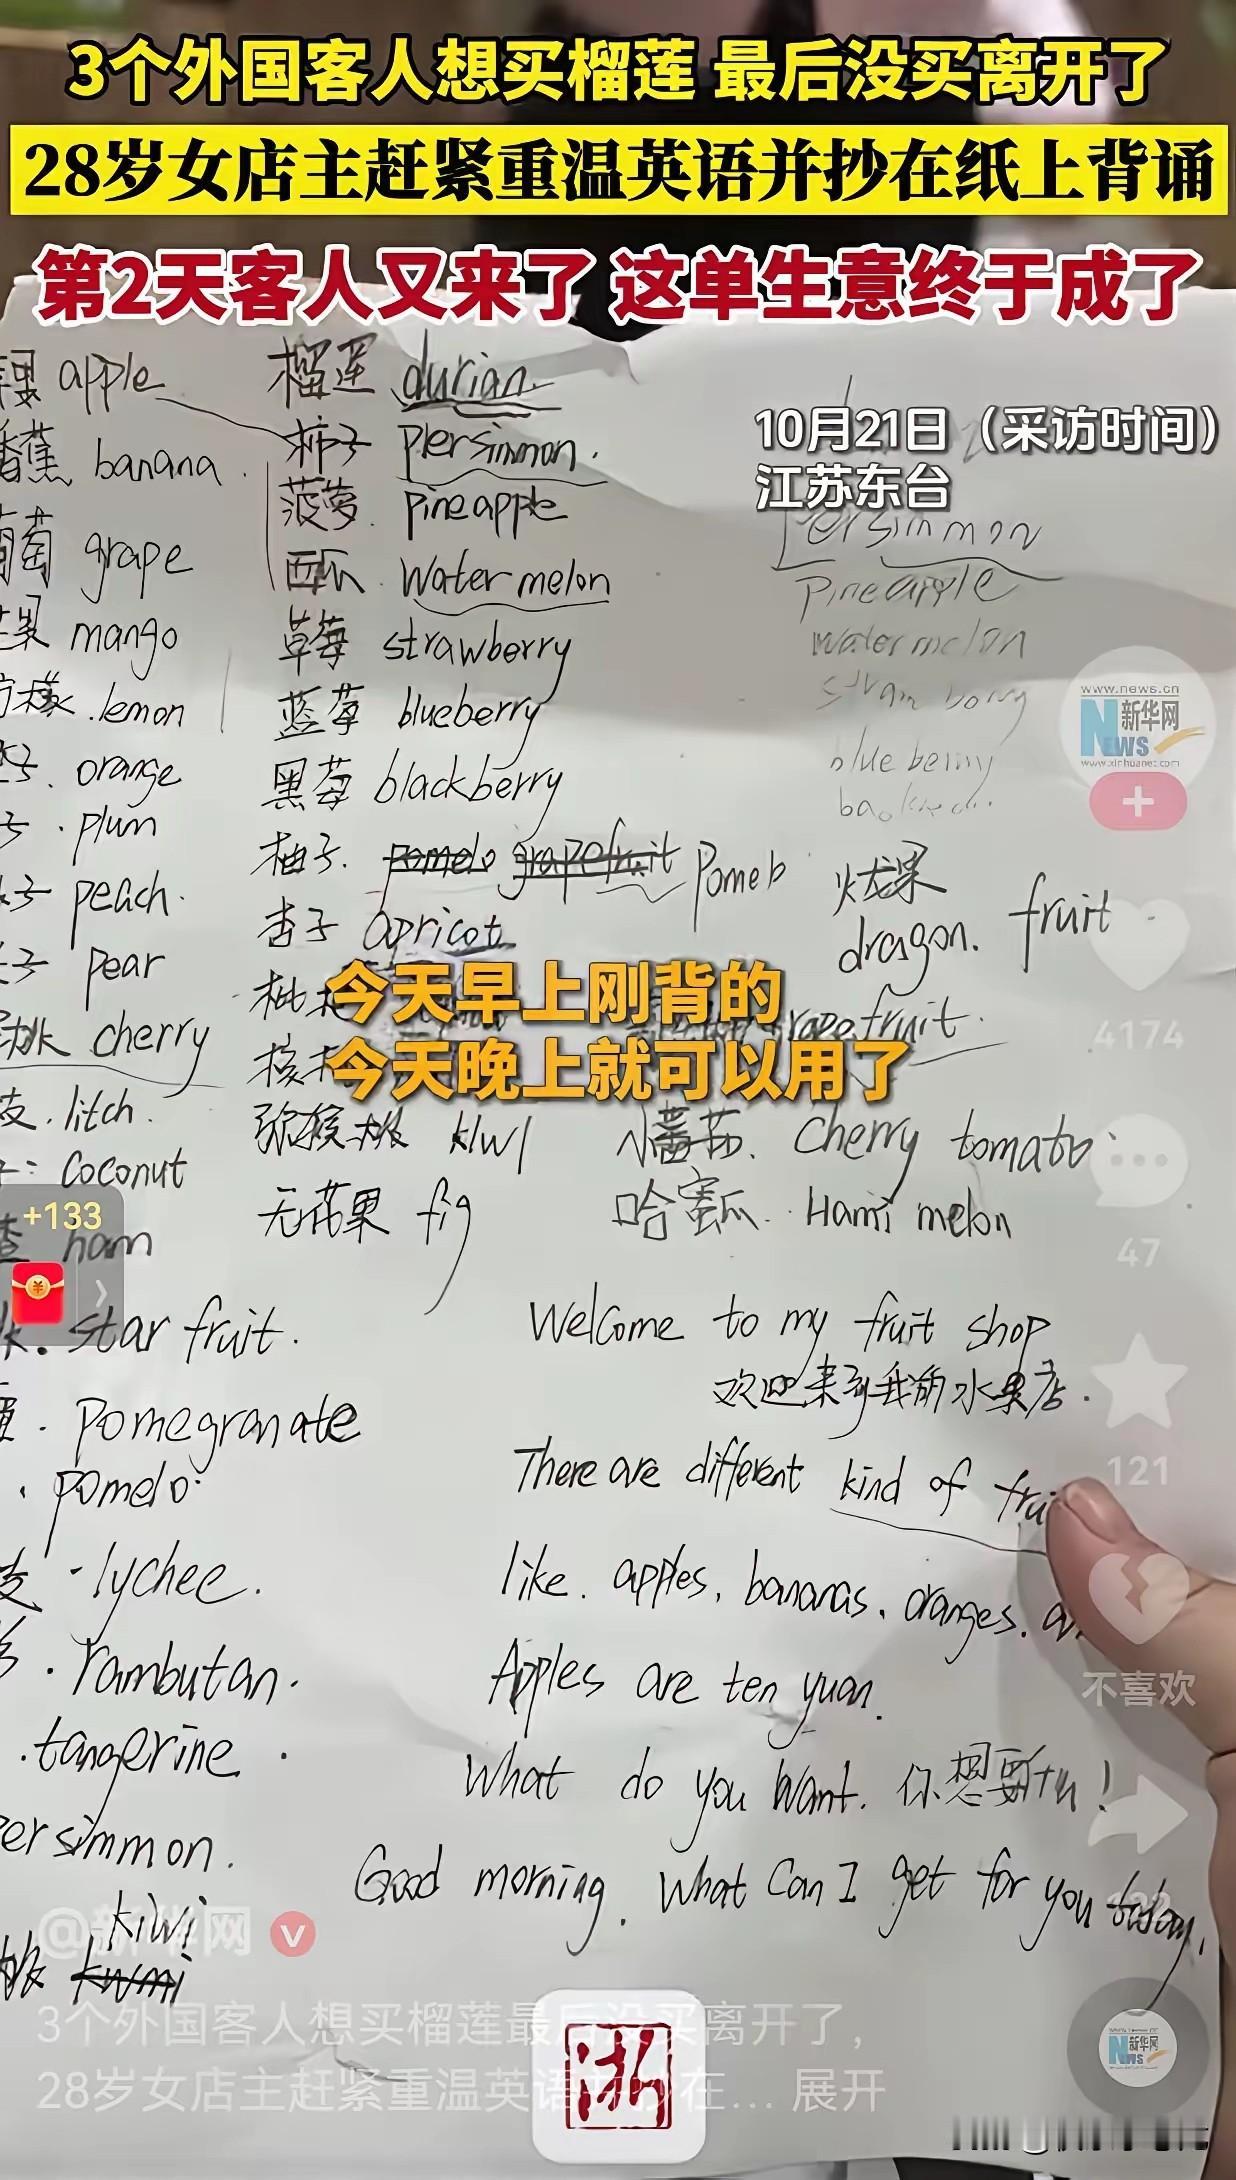 3个外国客人想买榴莲 最后没买离开了
28岁女店主赶紧重温英语并抄在纸上背诵
第2天客人又来了 这单生意终于成了
10月21日（采访时间）
江苏东台
apple
蕉 banana
萄 grape
mango
lemon
orange
plun
peach
pear
桃 cherry
litch
coconut
ham
star fruit
pomegranate
pomelo
lychee
rambutan
tangerine
ersimmon
kiwi
kwmi
榴莲 durian
柿子 plersimmon
菠萝 pineapple
西瓜 watermelon
草莓 strawberry
蓝莓 blueberry
黑莓 blackberry
柚子 pomelo grapefruit
杏子 apricot
枇
核
猕猴桃 kiwi
无花果 fig
persimmon
pineapple
watermelon
火龙果
dragon. fruit
fruit
小蕃茄. cherry tomato
哈蜜瓜. Hami melon
今天早上刚背的
今天晚上就可以用了
Welcome to my fruit shop
欢迎来到我的水果店.
There are different kind of
like. apples, bananas, oranges.
Apples are ten yuan.
What do you want. 你想要什么!
Good morning. What can I get for you
www.news.cn
新华网
NEWS
www.xinhuanet.com
4174
47
121
不喜欢
+133
@新华网
3个外国客人想买榴莲最后没买离开了，
28岁女店主赶紧重温英语并抄在... 展开
浙
新华网
NEWS